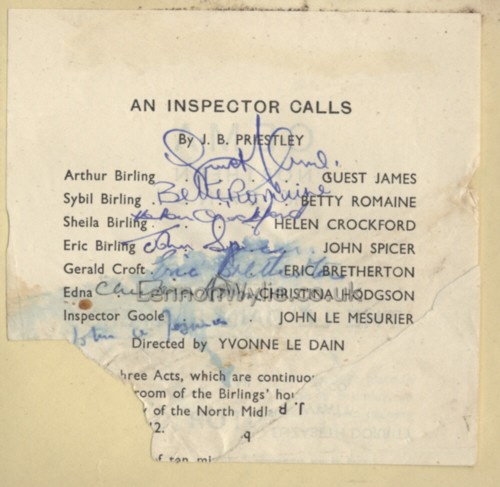 AN INSPECTOR CALLS
By J. B. PRIESTLEY
Guest James.
Arthur Birling . GUEST JAMES
Betty Romaine
Sybil Birling . BETTY ROMAINE
Helen Crockford
Sheila Birling . HELEN CROCKFORD
John Spicer
Eric Birling . JOHN SPICER
Eric Bretherton
Gerald Croft . ERIC BRETHERTON
Edna CHRISTINA HODGSON
Inspector Goole JOHN LE MESURIER
John Le Mesurier
Directed by YVONNE LE DAIN
hree Acts, which are continuo
room of the Birlings' hou
y of the North Midl
2.
f ten mi